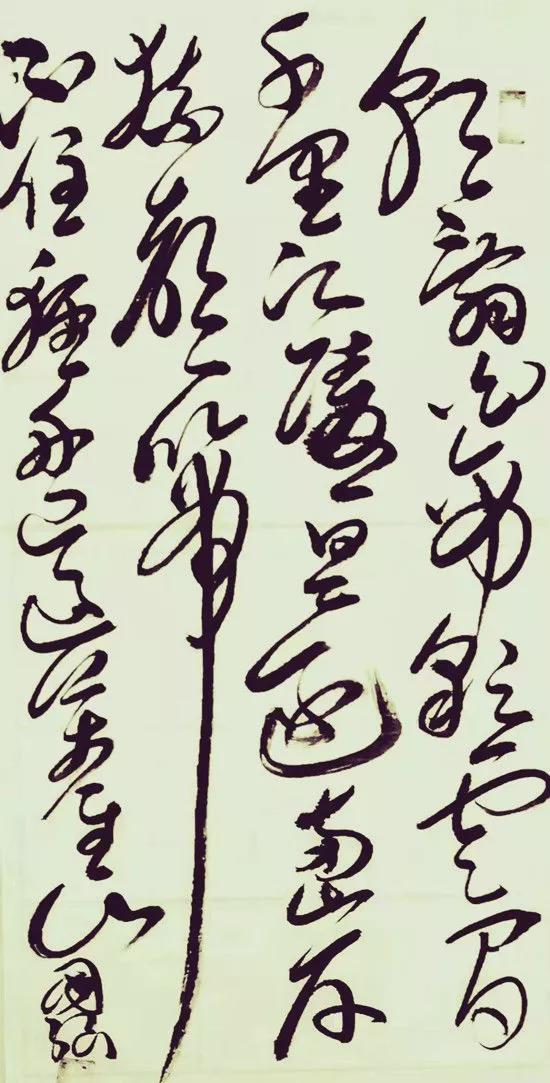 朝辭白帝彩雲間
千里江陵一日還兩岸
猿聲啼
不住輕舟已過萬重山